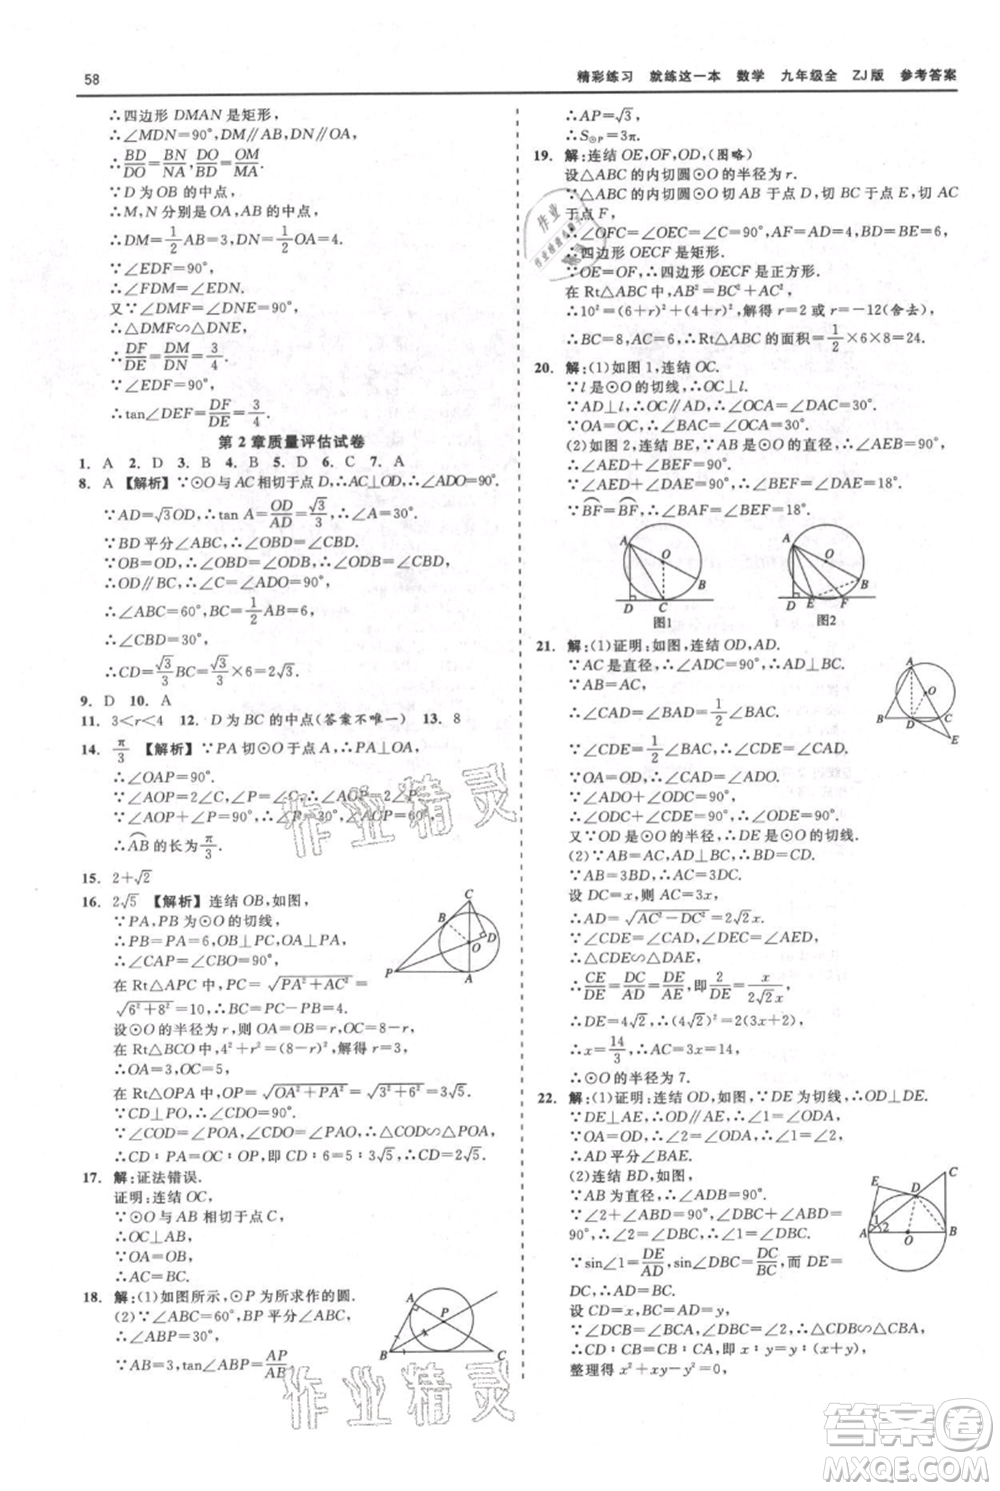 58
精彩练习 就练这一本 数学 九年级全 ZJ版 参考答案
∴四边形 DMAN 是矩形,
∴∠MDN=90°,DM∥AB,DN∥OA,
∴BD/DO=BN/NA,DO/BD=OM/MA.
∵D 为 OB 的中点,
∴M,N 分别是 OA,AB 的中点,
∴DM=1/2AB=3,DN=1/2OA=4.
∵∠EDF=90°,
∴∠FDM=∠EDN.
又∵∠DMF=∠DNE=90°,
∴△DMF∽△DNE,
∴DF/DE=DM/DN=3/4.
∵∠EDF=90°,
∴tan∠DEF=DF/DE=3/4.
第 2 章质量评估试卷
1. A 2. D 3. B 4. B 5. D 6. C 7. A
8. A 【解析】∵⊙O 与 AC 相切于点 D,∴AC⊥OD,∴∠ADO=90°.
∵AD=√3OD,∴tan A=OD/AD=√3/3,∴∠A=30°.
∵BD 平分∠ABC,∴∠OBD=∠CBD.
∵OB=OD,∴∠OBD=∠ODB,∴∠ODB=∠CBD,
∴OD∥BC,∴∠C=∠ADO=90°,
∴∠ABC=60°,∴BC=1/2AB=6,
∴∠CBD=30°,
∴CD=√3/3BC=√3/3×6=2√3.
9. D 10. A
11. 3<r<4 12. D 为 BC 的中点(答案不唯一) 13. 8
14. π/3 【解析】∵PA 切⊙O 于点 A,∴PA⊥OA,
∴∠OAP=90°.
∵∠AOP=2∠C,∠C=∠P,∴∠AOP=2∠P.
∵∠AOP+∠P=90°,∴∠P=30°,∴∠AOP=60°,
∴AB⌒的长为π/3.
15. 2+√2
16. 2√5 【解析】连结 OB,如图,
∵PA,PB 为⊙O 的切线,
∴PB=PA=6,OB⊥PC,OA⊥PA,
∴∠CAP=∠CBO=90°.
在 Rt△APC 中,PC=√(PA²+AC²)=
√(6²+8²)=10,∴BC=PC-PB=4.
设⊙O 的半径为 r,则 OA=OB=r,OC=8-r,
在 Rt△BCO 中,4²+r²=(8-r)²,解得 r=3,
∴OA=3,OC=5.
在 Rt△OPA 中,OP=√(OA²+PA²)=√(3²+6²)=3√5.
∵CD⊥PO,∴∠CDO=90°.
∵∠COD=∠POA,∠CDO=∠PAO,∴△COD∽△POA,
∴CD∶PA=OC∶OP,即 CD∶6=5∶3√5,∴CD=2√5.
17. 解:证法错误.
证明:连结 OC,
∵⊙O 与 AB 相切于点 C,
∴OC⊥AB,
∵OA=OB,
∴AC=BC.
18. 解:(1)如图所示,⊙P 为所求作的圆.
(2)∵∠ABC=60°,BP 平分∠ABC,
∴∠ABP=30°,
∵AB=3,tan∠ABP=AP/AB,
∴AP=√3,
∴S⊙P=3π.
19. 解:连结 OE,OF,OD,(图略)
设△ABC 的内切圆⊙O 的半径为 r.
∵△ABC 的内切圆⊙O 切 AB 于点 D,切 BC 于点 E,切 AC 于
点 F,
∴∠OFC=∠OEC=∠C=90°,
∴四边形 OECF 是矩形.
∵OE=OF,∴四边形 OECF 是正方形.
在 Rt△ABC 中,AB²=BC²+AC²,
∴10²=(6+r)²+(4+r)²,解得 r=2 或 r=-12(舍去),
∴BC=8,AC=6,∴Rt△ABC 的面积=1/2×6×8=24.
20. 解:(1)如图 1,连结 OC.
∵l 是⊙O 的切线,∴OC⊥l.
∵AD⊥l,∴OC∥AD,∴∠OCA=∠DAC.
∵OA=OC,∴∠BAC=∠OCA,∴∠BAC=∠DAC=30°.
(2)如图 2,连结 BE,∵AB 是⊙O 的直径,∴∠AEB=90°,
∴∠AED+∠BEF=90°.
∵∠AED+∠DAE=90°,∴∠BEF=∠DAE=18°.
∵BF⌒=BF⌒,∴∠BAF=∠BEF=18°.
A O B D C
图1
A O B D E F
图2
21. 解:(1)证明:如图,连结 OD,AD.
∵AC 是直径,∴∠ADC=90°.
∵AB=AC,
∴∠CAD=∠BAD=1/2∠BAC.
∵∠CDE=1/2∠BAC,∴∠CDE=∠CAD.
∵OA=OD,∴∠CAD=∠ADO.
∵∠ADO+∠ODC=90°,
∴∠ODC+∠CDE=90°,∴∠ODE=90°.
又∵OD 是⊙O 的半径,∴DE 是⊙O 的切线.
(2)∵AB=AC,AD⊥BC,∴BD=CD.
设 DC=x,则 AC=3x,
∴AD=√(AC²-DC²)=2√2x.
∵∠CDE=∠CAD,∠DEC=∠AED,
∴△CDE∽△DAE,
∴CE/DE=CD/DA=DE/AE,即2/DE=x/2√2x,
∴DE=4√2,∴(4√2)²=2(3x+2),
∴x=14/3,∴AC=3x=14,
∴⊙O 的半径为 7.
22. 解:(1)证明:连结 OD,如图,∵DE 为切线,∴OD⊥DE.
∵DE⊥AE,∴OD∥AE,∴∠1=∠ODA.
∵OA=OD,∴∠2=∠ODA,∴∠1=∠2,
∴AD 平分∠BAE.
(2)连结 BD,如图,
∵AB 为直径,∴∠ADB=90°.
∵∠2+∠ABD=90°,∠DBC+∠ABD=
90°,∴∠2=∠DBC,∴∠1=∠DBC.
∵sin∠1=DE/AD,sin∠DBC=DC/BC,而 DE=
DC,∴AD=BC.
设 CD=x,BC=AD=y.
∵∠DCB=∠BCA,∠DBC=∠2,∴△CDB∽△CBA,
∴CD∶CB=CB∶CA,即 x∶y=y∶(x+y),
整理得 x²+xy-y²=0,
作业精灵
作业精灵
答案圈
MXQE.COM